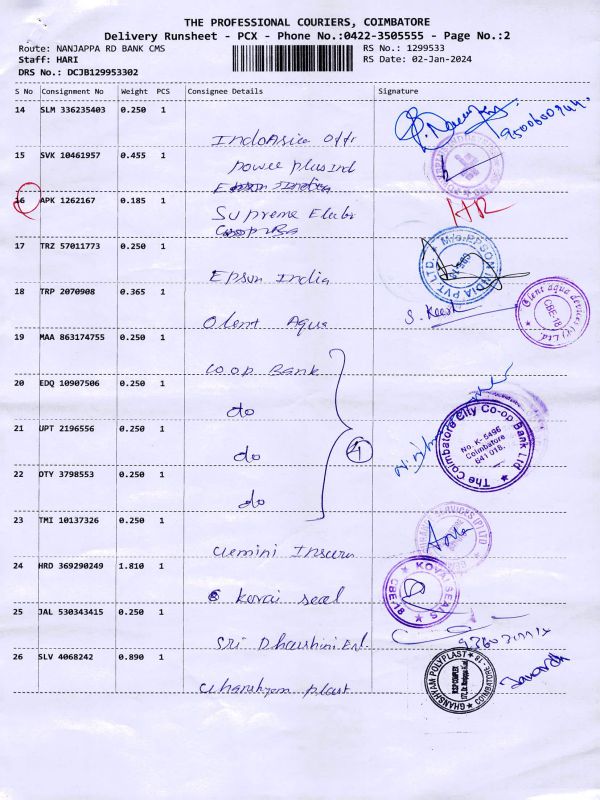 THE PROFESSIONAL COURIERS, COIMBATORE
Delivery Runsheet - PCX - Phone No.:0422-3505555 - Page No.:2
Route: NANJAPPA RD BANK CMS
RS No.: 1299533
Staff: HARI
RS Date: 02-Jan-2024
DRS No.: DCJB129953302
S No Consignment No Weight PCS Consignee Details Signature
14 SLM 336235403 0.250 1
9500600944
IndoAsia Offi
15 SVK 10461957 0.455 1
Power plus Ind
Epson India
16 APK 1262167 0.185 1
HR
Supreme
17 TRZ 57011773 0.250 1
M/s. EPSON INDIA PVT. LTD.
Epson India
18 TRP 2070908 0.365 1
S. Keesh
Olent aqua devices (P) Ltd.
CBE-18
Olent Aqua
19 MAA 863174755 0.250 1
Co.op Bank
20 EDQ 10907506 0.250 1
do
21 UPT 2196556 0.250 1
The Coimbatore City Co-op Bank Ltd
No. K- 5496
Coimbatore
641 018.
do
4
22 DTY 3798553 0.250 1
do
23 TMI 10137326 0.250 1
SERVICES (P) LTD
Gemini Insura
24 HRD 369290249 1.810 1
KOVAI SEALS
CBE-18
Kovai seal
25 JAL 530343415 0.250 1
Sri Dharshini Ent.
26 SLV 4068242 0.890 1
GHANSHYAM POLYPLAST
COIMBATORE-18
Ghanshyam plast